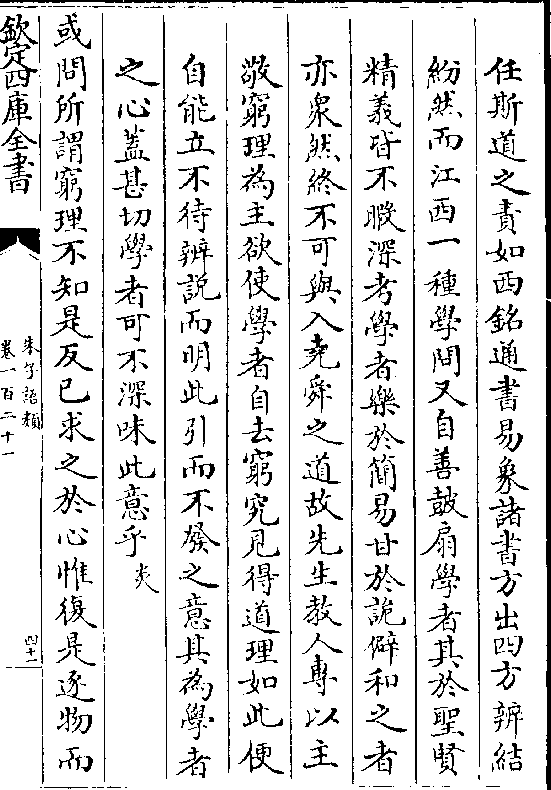 任斯道之責如西銘通書易象諸書方出四方辨結
紛然而江西一種學問又自善鼓扇學者其於聖賢
精義皆不暇深考學者樂於簡易甘於詭僻和之者
亦衆然終不可與入堯舜之道故先生教人專以主
敬窮理為主欲使學者自去窮究見得道理如此便
自能立不待辨說而明此引而不發之意其為學者
之心蓋甚切學者可不深味此意乎 炎
或問所謂窮理不知是反己求之於心惟復是逐物而
欽定四庫全書
朱子語類
卷一百二十一
四十一